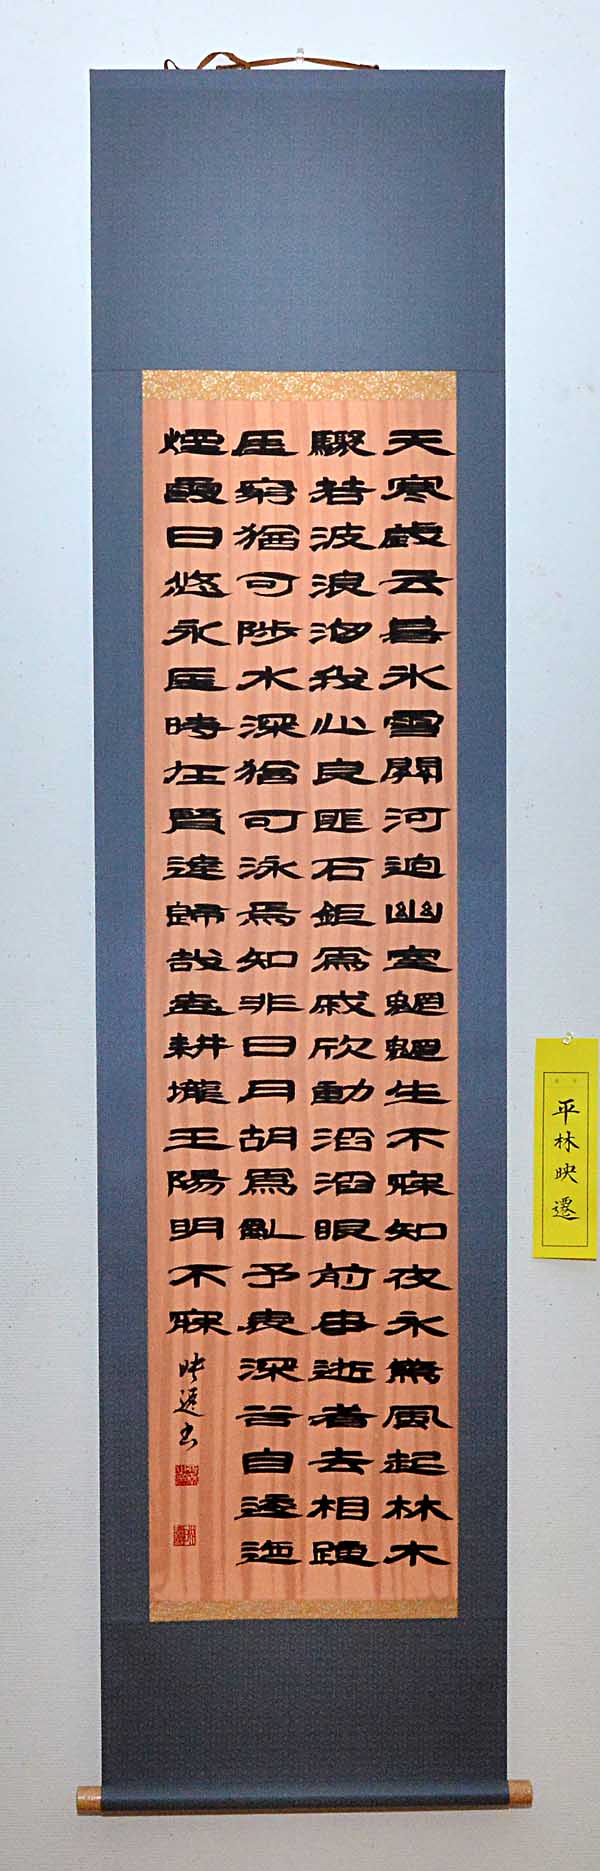 天寒歲云暮氷雪關河迥幽室魍魎生不寐知夜永驚風起林木
驟若波浪洶我心良匪石鉅爲戚欣動滔滔眼前事逝者去相踵
厓窮猶可陟水深猶可泳焉知非日月胡爲亂予衷深谷自逶迤
煙霞日悠永匡時在賢達歸哉盍耕壠王陽明不寐
映遷書
平林映遷